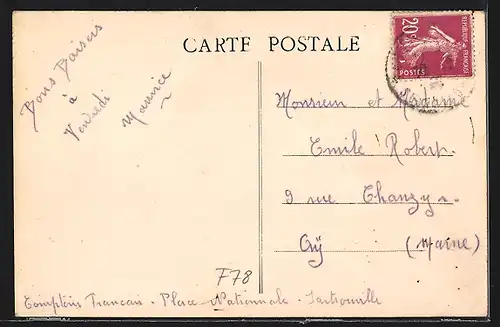 CARTE POSTALE
20c
REPUBLIQUE FRANÇAISE
POSTES
Bons Baisers
à
Vendredi
Maurice
Monsieur et Madame
Emile Robert
9 rue Chanzy
(Marne)
F78
Comptoir Francais - Place Nationale - Sartrouville